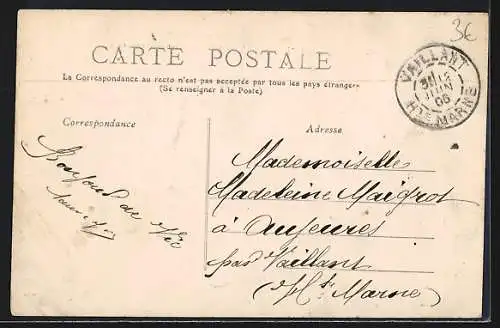 3€
CARTE POSTALE
La Correspondance au recto n'est pas acceptée par tous les pays étrangers
(Se renseigner à la Poste)
VAILLANT
JUIN
05
HTE MARNE
Correspondance
Bonjour de
Adresse
Mademoiselle
Madeleine Maigrot
à Aujeures
par Vaillant
(Hte Marne)